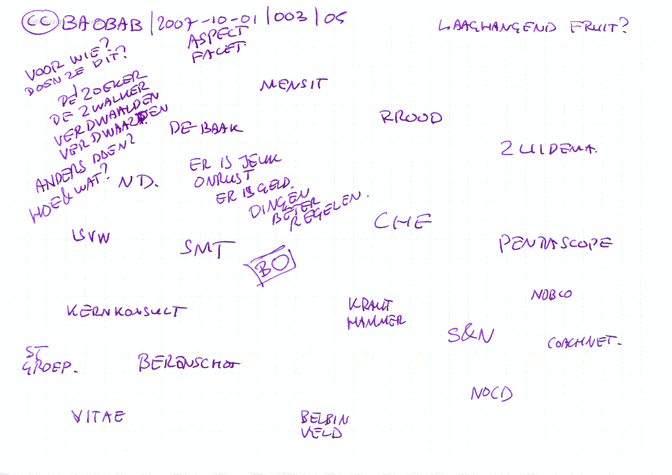 CC BAOBAB | 2007-10-01 | 003 | 05
LAAGHANGEND FRUIT?
ASPECT
FACET
VOOR WIE?
DOEN ZE DIT?
DE ZOEKER
DE ZWALKER
VERDWAALDEN
VERDWAASDEN
ANDERS DOEN?
HOE & WAT?
MENSIT
RROOD
DE BAAK
ZUIDEMA.
ER IS JEUK
ONRUST
ER IS GELD.
DINGEN
BETER
REGELEN.
ND.
CHE
ISVW
SMT
BO
PENTASCOPE
KERNKONSULT
KRAUT
HAMMER
NOBCO
S&N
COACHNET.
ST
GROEP.
BERENSCHOT
NOCD
VITAE
BELBIN
VELD